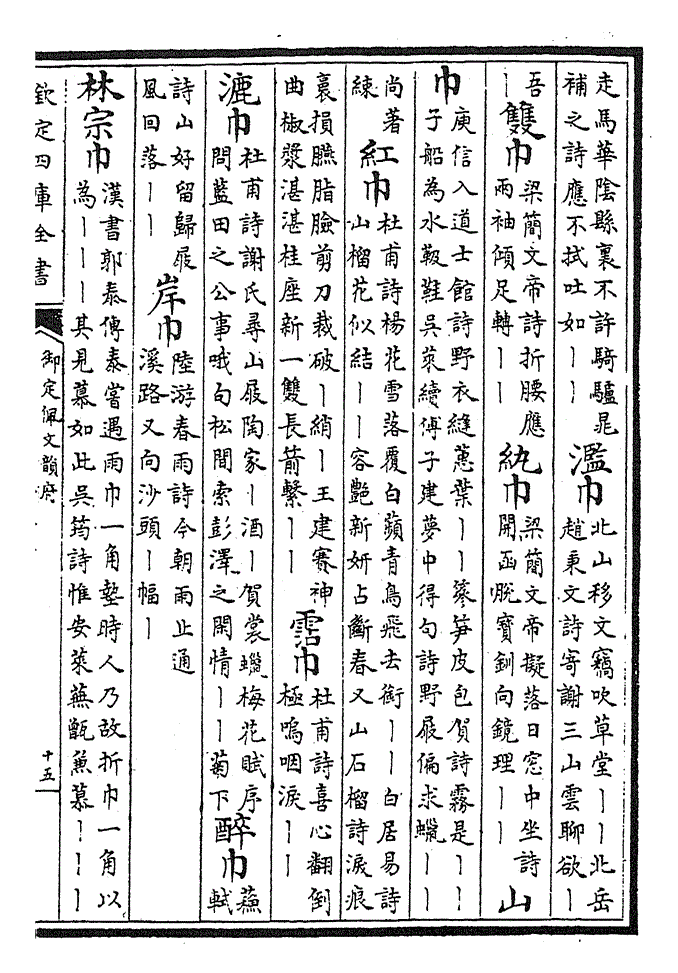 走馬華陰縣裏不許騎驢晁
補之詩應不拭吐如丨丨
濫巾
北山移文竊吹草堂丨丨北岳
趙秉文詩寄謝三山雲聊欲丨
吾
丨
雙巾
梁簡文帝詩折腰應
兩袖傾足轉丨丨
紈巾
梁簡文帝擬落日窓中坐詩
開函脫寶釧向鏡理丨丨
山
巾
庾信入道士館詩野衣縫蕙葉丨丨篸笋皮包賀詩霧是丨丨
子船為水靸鞋吳萊續傅子建夢中得句詩野屐偏求蠟丨丨
尚著
練
紅巾
杜甫詩楊花雪落覆白蘋青鳥飛去銜丨丨白居易詩
山榴花似結丨丨容艷新妍占斷春又山石榴詩淚痕
裛損臙脂臉剪刀裁破丨綃丨王建賽神
曲椒漿湛湛桂座新一雙長箭繫丨丨
霑巾
杜甫詩喜心翻倒
極嗚咽淚丨丨
漉巾
杜甫詩謝氏尋山屐陶家丨酒丨賀裳蠟梅花賦序
問藍田之公事哦句松間索彭澤之閑情丨丨菊下
醉巾
蘇
軾
詩山好留歸屐
風回落丨丨
岸巾
陸游春雨詩今朝雨止通
溪路又向沙頭丨幅丨
林宗巾
漢書郭泰傳泰嘗遇雨巾一角墊時人乃故折巾一角以
為丨丨丨其見慕如此吳筠詩惟安萊蕪甑兼慕丨丨丨
欽定四庫全書
御定佩文韻府
十五